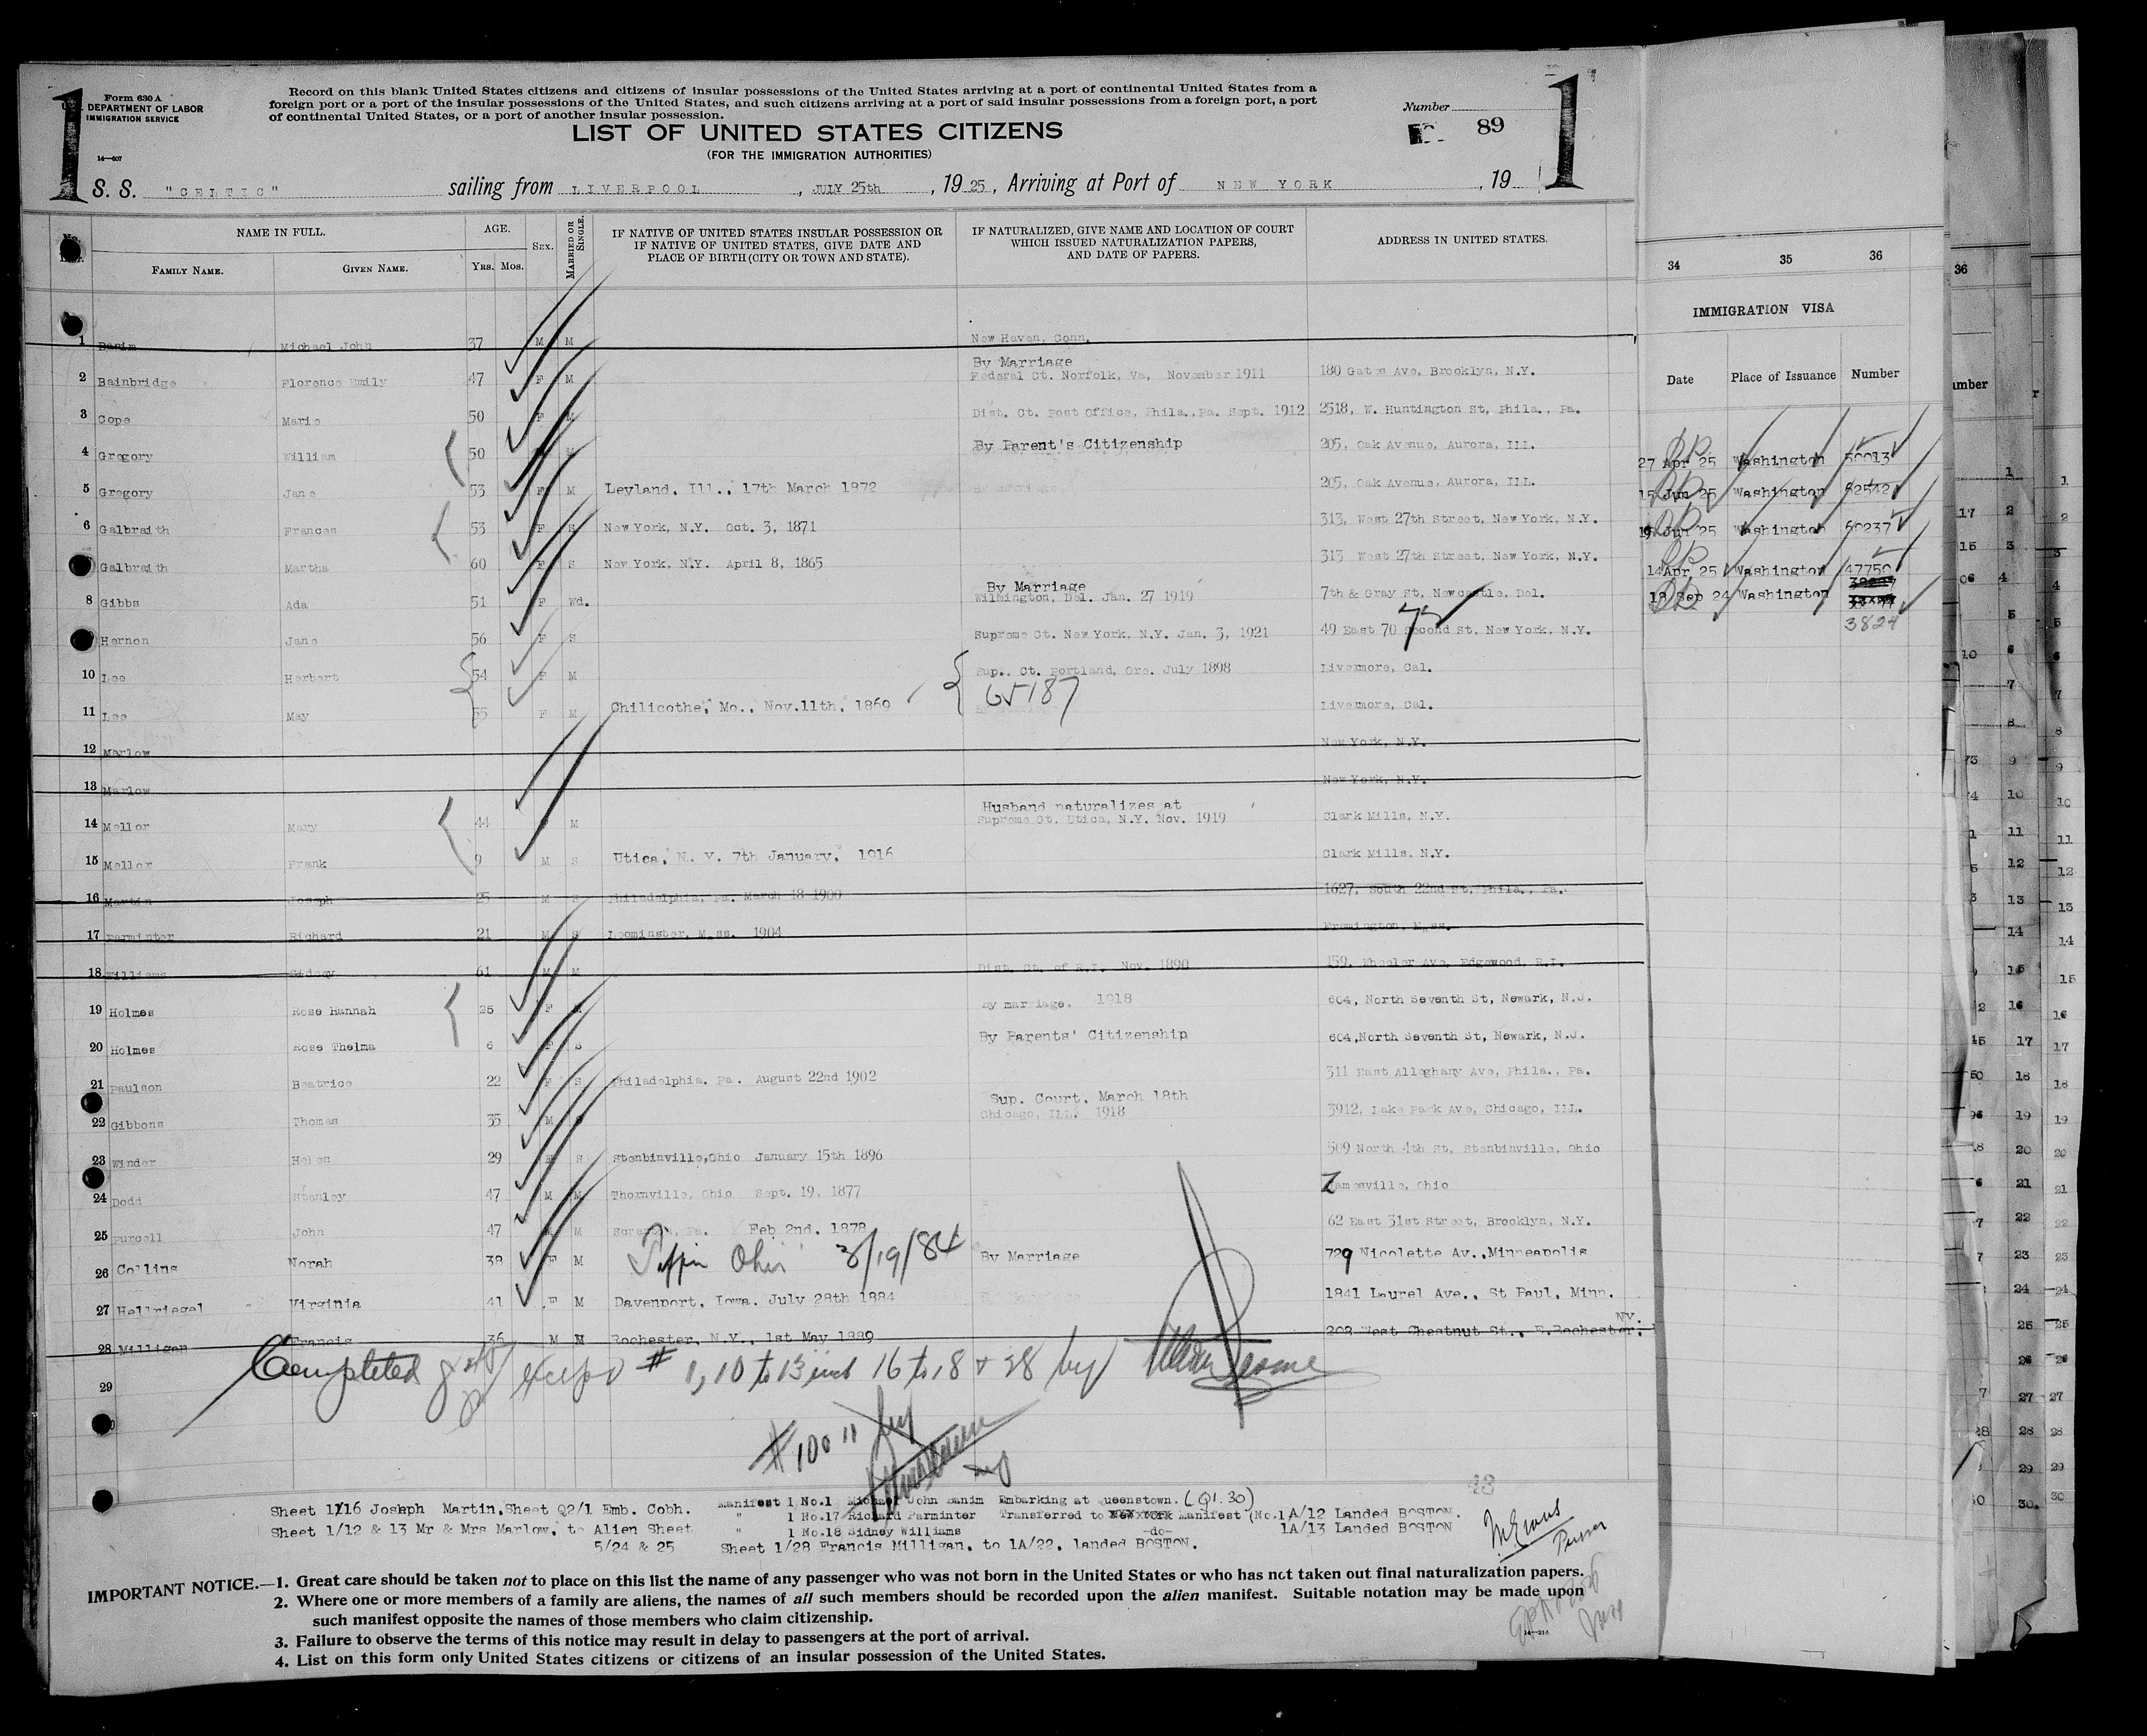 1
Form 630 A
U.S. DEPARTMENT OF LABOR
IMMIGRATION SERVICE
Record on this blank United States citizens and citizens of insular possessions of the United States arriving at a port of continental United States from a
foreign port or a port of the insular possessions of the United States, and such citizens arriving at a port of said insular possessions from a foreign port, a port
of continental United States, or a port of another insular possession.
Number
89
1
LIST OF UNITED STATES CITIZENS
(FOR THE IMMIGRATION AUTHORITIES)
14—607
S. S. "CELTIC" sailing from LIVERPOOL, JULY 25th, 1925, Arriving at Port of NEW YORK, 19
NAME IN FULL. AGE. SEX. MARRIED OR SINGLE.
FAMILY NAME. GIVEN NAME. Yrs. Mos.
IF NATIVE OF UNITED STATES INSULAR POSSESSION OR
IF NATIVE OF UNITED STATES, GIVE DATE AND
PLACE OF BIRTH (CITY OR TOWN AND STATE).
IF NATURALIZED, GIVE NAME AND LOCATION OF COURT
WHICH ISSUED NATURALIZATION PAPERS,
AND DATE OF PAPERS.
ADDRESS IN UNITED STATES.
1 Banim Michael John 37 M M New Haven, Conn.
By Marriage
2 Bainbridge Florence Emily 47 F M Federal Ct. Norfolk, Va, November 1911 180 Gates Ave, Brooklyn, N.Y.
3 Cope Marie 50 F M Dist. Ct. Post Office, Phila.,Pa. Sept. 1912 2518, W. Huntington St, Phila., Pa.
4 Gregory William 50 M By Parent's Citizenship 205, Oak Avenue, Aurora, ILL.
5 Gregory Jane 53 F M Leyland, Ill., 17th March 1872 205, Oak Avenue, Aurora, ILL.
6 Galbraith Frances 53 F S New York, N.Y. Oct. 3, 1871 313, West 27th Street, New York, N.Y.
Galbraith Martha 60 F S New York, N.Y. April 8, 1865 313 West 27th Street, New York, N.Y.
By Marriage
8 Gibbs Ada 51 F Wd. Wilmington, Del. Jan. 27 1919 7th & Gray St, Newcastle, Del.
72
Hernon Jane 56 F S Supreme Ct. New York, N.Y. Jan. 3, 1921 49 East 70 Second St, New York, N.Y.
10 Lee Herbert 54 F M Sup., Ct. Portland, Ore. July 1898 Livermore, Cal.
65187
11 Lee May 55 F M Chilicothe, Mo., Nov.11th, 1869 Livermore, Cal.
12 Marlow New York, N.Y.
13 Marlow New York, N.Y.
Husband naturalizes at
14 Mellor Mary 44 M Supreme Ct. Utica, N.Y. Nov. 1919 Clark Mills, N.Y.
15 Mellor Frank 9 M S Utica, N. Y. 7th January, 1916 Clark Mills, N.Y.
16 Martin Joseph 25 M S Philadelphia, Pa. March 18 1900 1627, South 22nd St, Phila., Pa.
17 Parminter Richard 21 M S Leominster, Mass. 1904 Framington, Mass.
18 Williams Sidney 61 M M Dist. Ct. of R.I. Nov. 1890 159, Wheeler Ave, Edgewood, R.I.
19 Holmes Rose Hannah 26 F By marriage. 1918 604, North Seventh St, Newark, N.J.
20 Holmes Rose Thelma 6 F S By Parents' Citizenship 604,North Seventh St, Newark, N.J.
21 Paulson Beatrice 22 F S Philadelphia, Pa. August 22nd 1902 311 East Alleghany Ave, Phila., Pa.
Sup. Court, March 18th
22 Gibbons Thomas 35 M Chicago, ILL. 1918 3912, Lake Park Ave, Chicago, ILL.
23 Winder Helen 29 F S Stenbinville,Ohio January 15th 1896 509 North 4th St, Stenbinville, Ohio
24 Dodd Stanley 47 M M Thornville, Ohio Sept. 19, 1877 Zamesville, Ohio
25 Purcell John 47 M Scranton, Pa. Feb 2nd, 1878 62 East 31st Street, Brooklyn, N.Y.
26 Collins Norah 38 F M Tiffin Ohio 3/19/84 By Marriage 729 Nicolette Av.,Minneapolis
27 Hellriegel Virginia 41 F M Davenport, Iowa. July 28th 1884 1841 Laurel Ave., St Paul, Minn.
NY.
28 Milligan Francis 36 M M Rochester, N.Y., 1st May 1889 202 West Chestnut St., E.Rochester.
29
Completed except # 1, 10 to 13 incl 16 to 18 + 28 by
# 10 & 11 by
43
Sheet 1/16 Joseph Martin,Sheet Q2/1 Emb. Cobh.
Sheet 1/12 & 13 Mr & Mrs Marlow, to Alien Sheet
5/24 & 25
Manifest 1 No.1 Michael John Banim Embarking at Queenstown. (Q1.30)
" 1 No.17 Richard Parminter Transferred to New York Manifest (No.1A/12 Landed BOSTON.
" 1 No.18 Sidney Williams -do- 1A/13 Landed BOSTON
Sheet 1/28 Francis Milligan, to 1A/22, landed BOSTON.
M Evans
Purser
IMPORTANT NOTICE.—1. Great care should be taken not to place on this list the name of any passenger who was not born in the United States or who has not taken out final naturalization papers.
2. Where one or more members of a family are aliens, the names of all such members should be recorded upon the alien manifest. Suitable notation may be made upon
such manifest opposite the names of those members who claim citizenship.
3. Failure to observe the terms of this notice may result in delay to passengers at the port of arrival.
4. List on this form only United States citizens or citizens of an insular possession of the United States.
34 35 36
IMMIGRATION VISA
Date Place of Issuance Number
27 Apr 25 Washington 50013
15 Jun 25 Washington 62542
19 Jun 25 Washington 50237
14 Apr 25 Washington 47750
18 Sep 24 Washington
3824
36